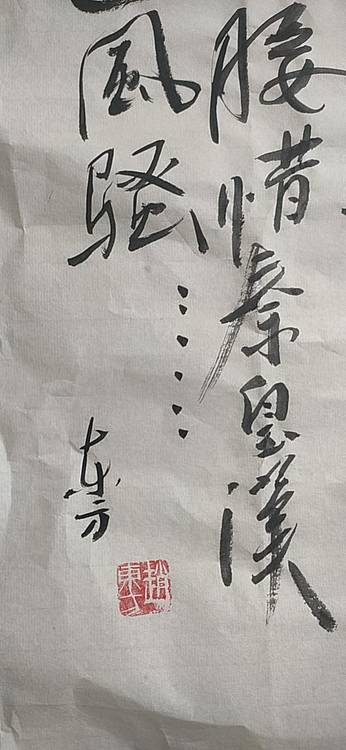 腰惜秦皇漢
風騷……
东方
趙東方